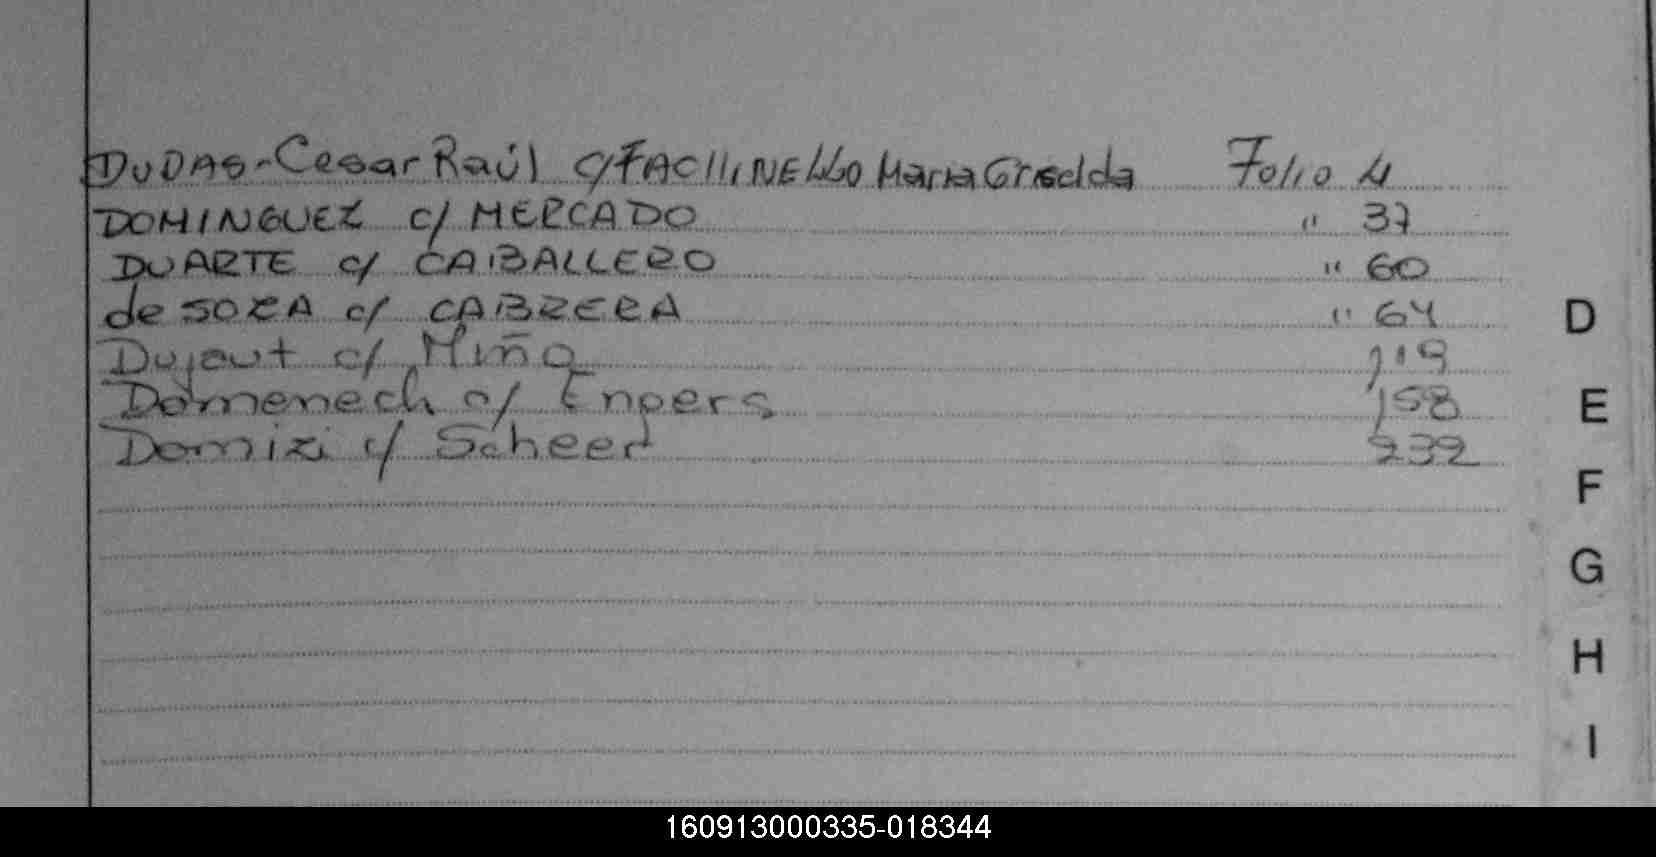 DUDAS-Cesar Raúl c/FACHINELLO Maria Griselda Folio 4
DOMINGUEZ c/ MERCADO " 37
DUARTE c/ CABALLERO " 60
de SOZA c/ CABRERA " 64
D
Dujaut c/ Miño 119
Domenech c/ Engers 158
E
Domizi c/ Scheer 232
F
G
H
I
160913000335-018344